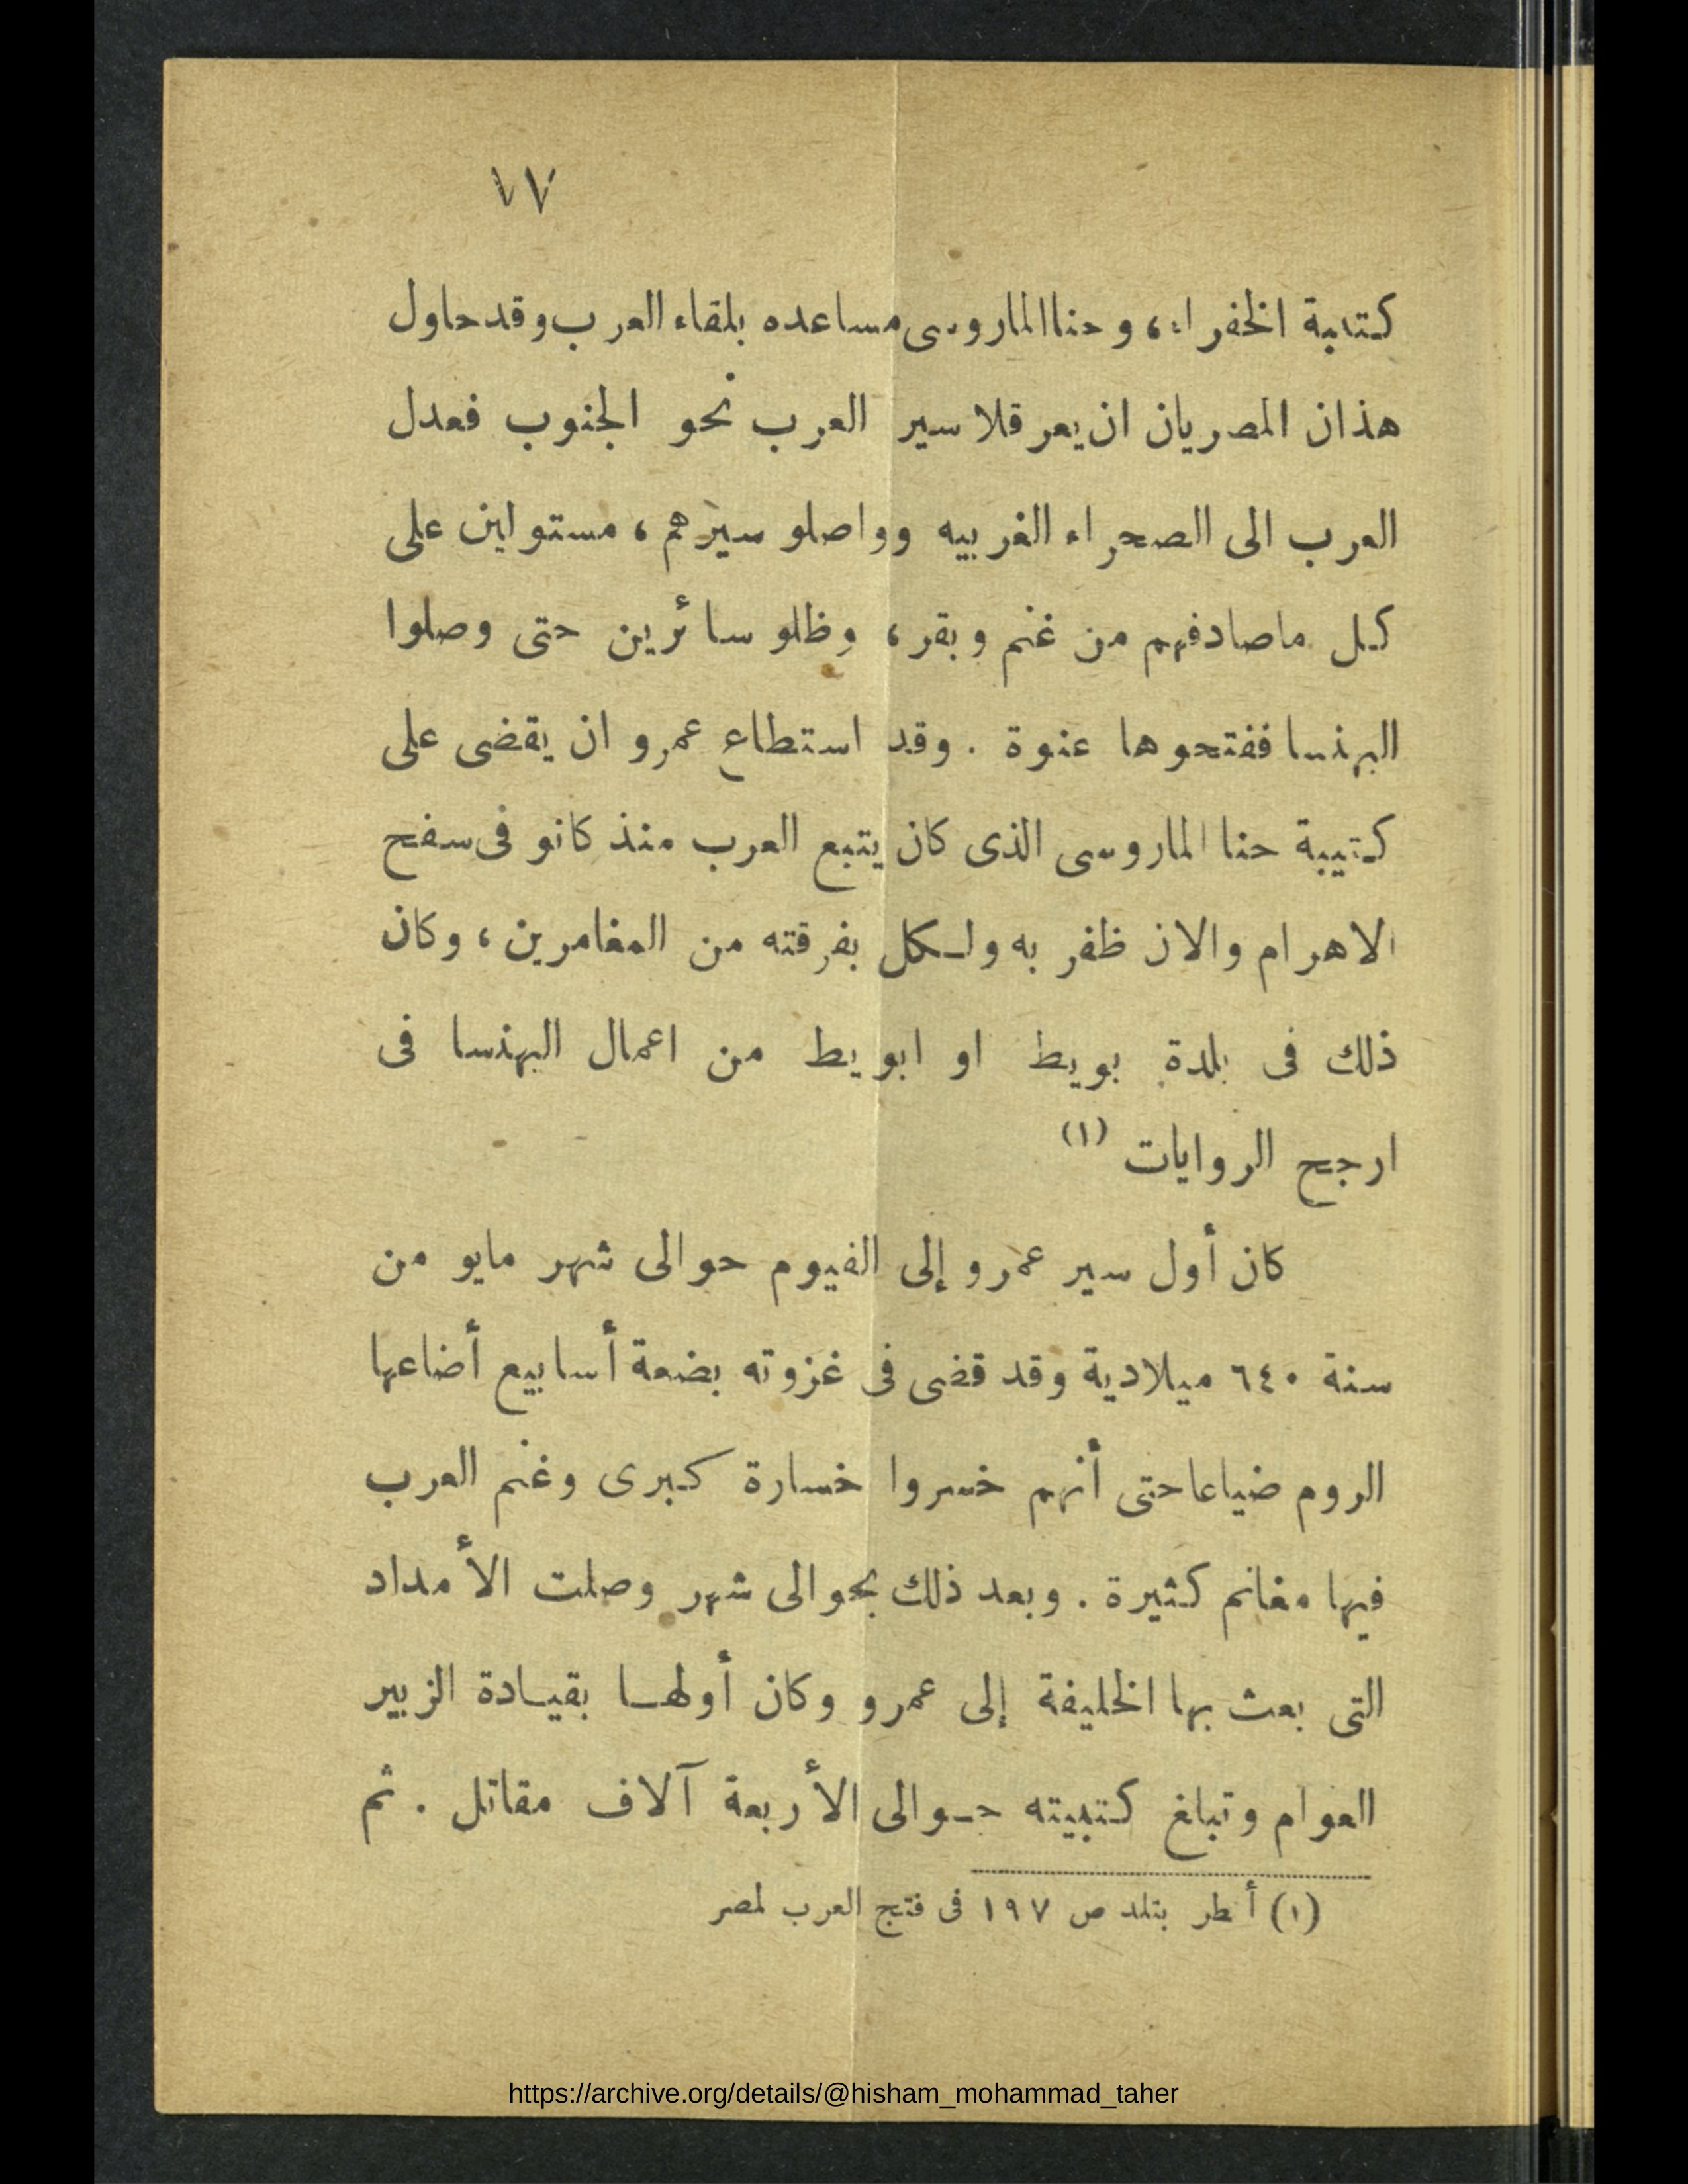 ١٧
كتيبة الخفراء، وحنا الماروسى مساعده بلقاء العرب وقد حاول
هذان المصريان ان يعرقلا سير العرب نحو الجنوب فعدل
العرب الى الصحراء الغربيه وواصلو سيرهم، مستولين على
كل ماصادفهم من غنم وبقر، وظلو سائرين حتى وصلوا
البهنسا ففتحوها عنوة . وقد استطاع عمرو ان يقضى على
كتيبة حنا الماروسى الذى كان يتبع العرب منذ كانو فى سفح
الاهرام والان ظفر به ولكل بفرقته من المغامرين، وكان
ذلك فى بلدة بويط او ابويط من اعمال البهنسا فى
ارجح الروايات (١)
كان أول سير عمرو إلى الفيوم حوالى شهر مايو من
سنة ٦٤٠ ميلادية وقد قضى فى غزوته بضعة أسابيع أضاعها
الروم ضياعا حتى أنهم خسروا خسارة كبرى وغنم العرب
فيها مغانم كثيرة . وبعد ذلك بحوالى شهر وصلت الأمداد
التى بعث بها الخليفة إلى عمرو وكان أولها بقيادة الزبير
العوام وتبلغ كتيبته حوالى الأربعة آلاف مقاتل . ثم
(١) أنظر بتلد ص ١٩٧ فى فتح العرب لمصر
https://archive.org/details/@hisham_mohammad_taher